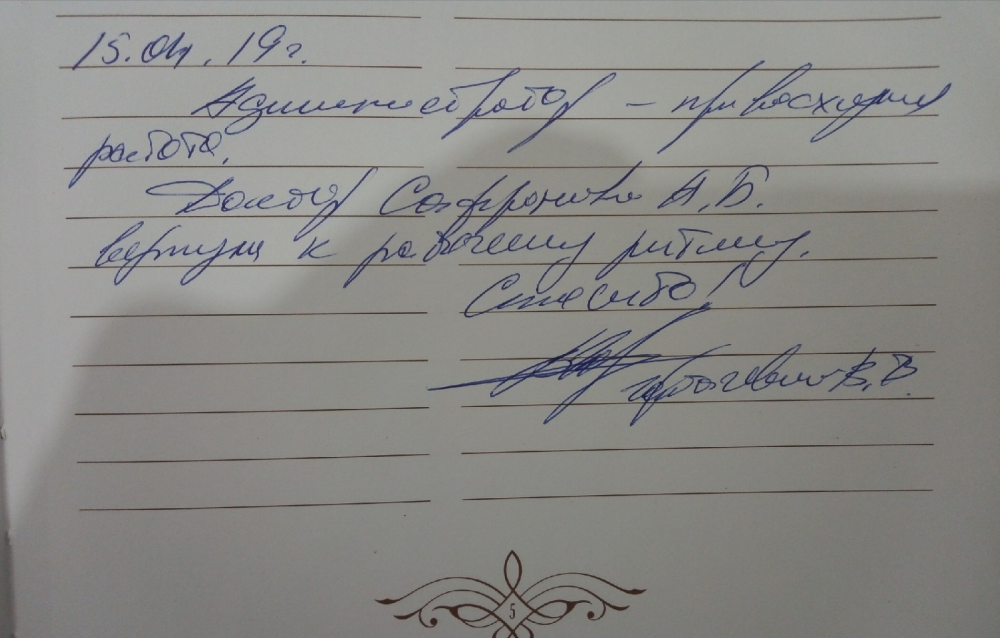 15.04.19г.
Администратор – привосходная
работа.
Доктор Сафронова А.Б.
вернула к рабочему ритму.
Спасибо!
В.В.
5